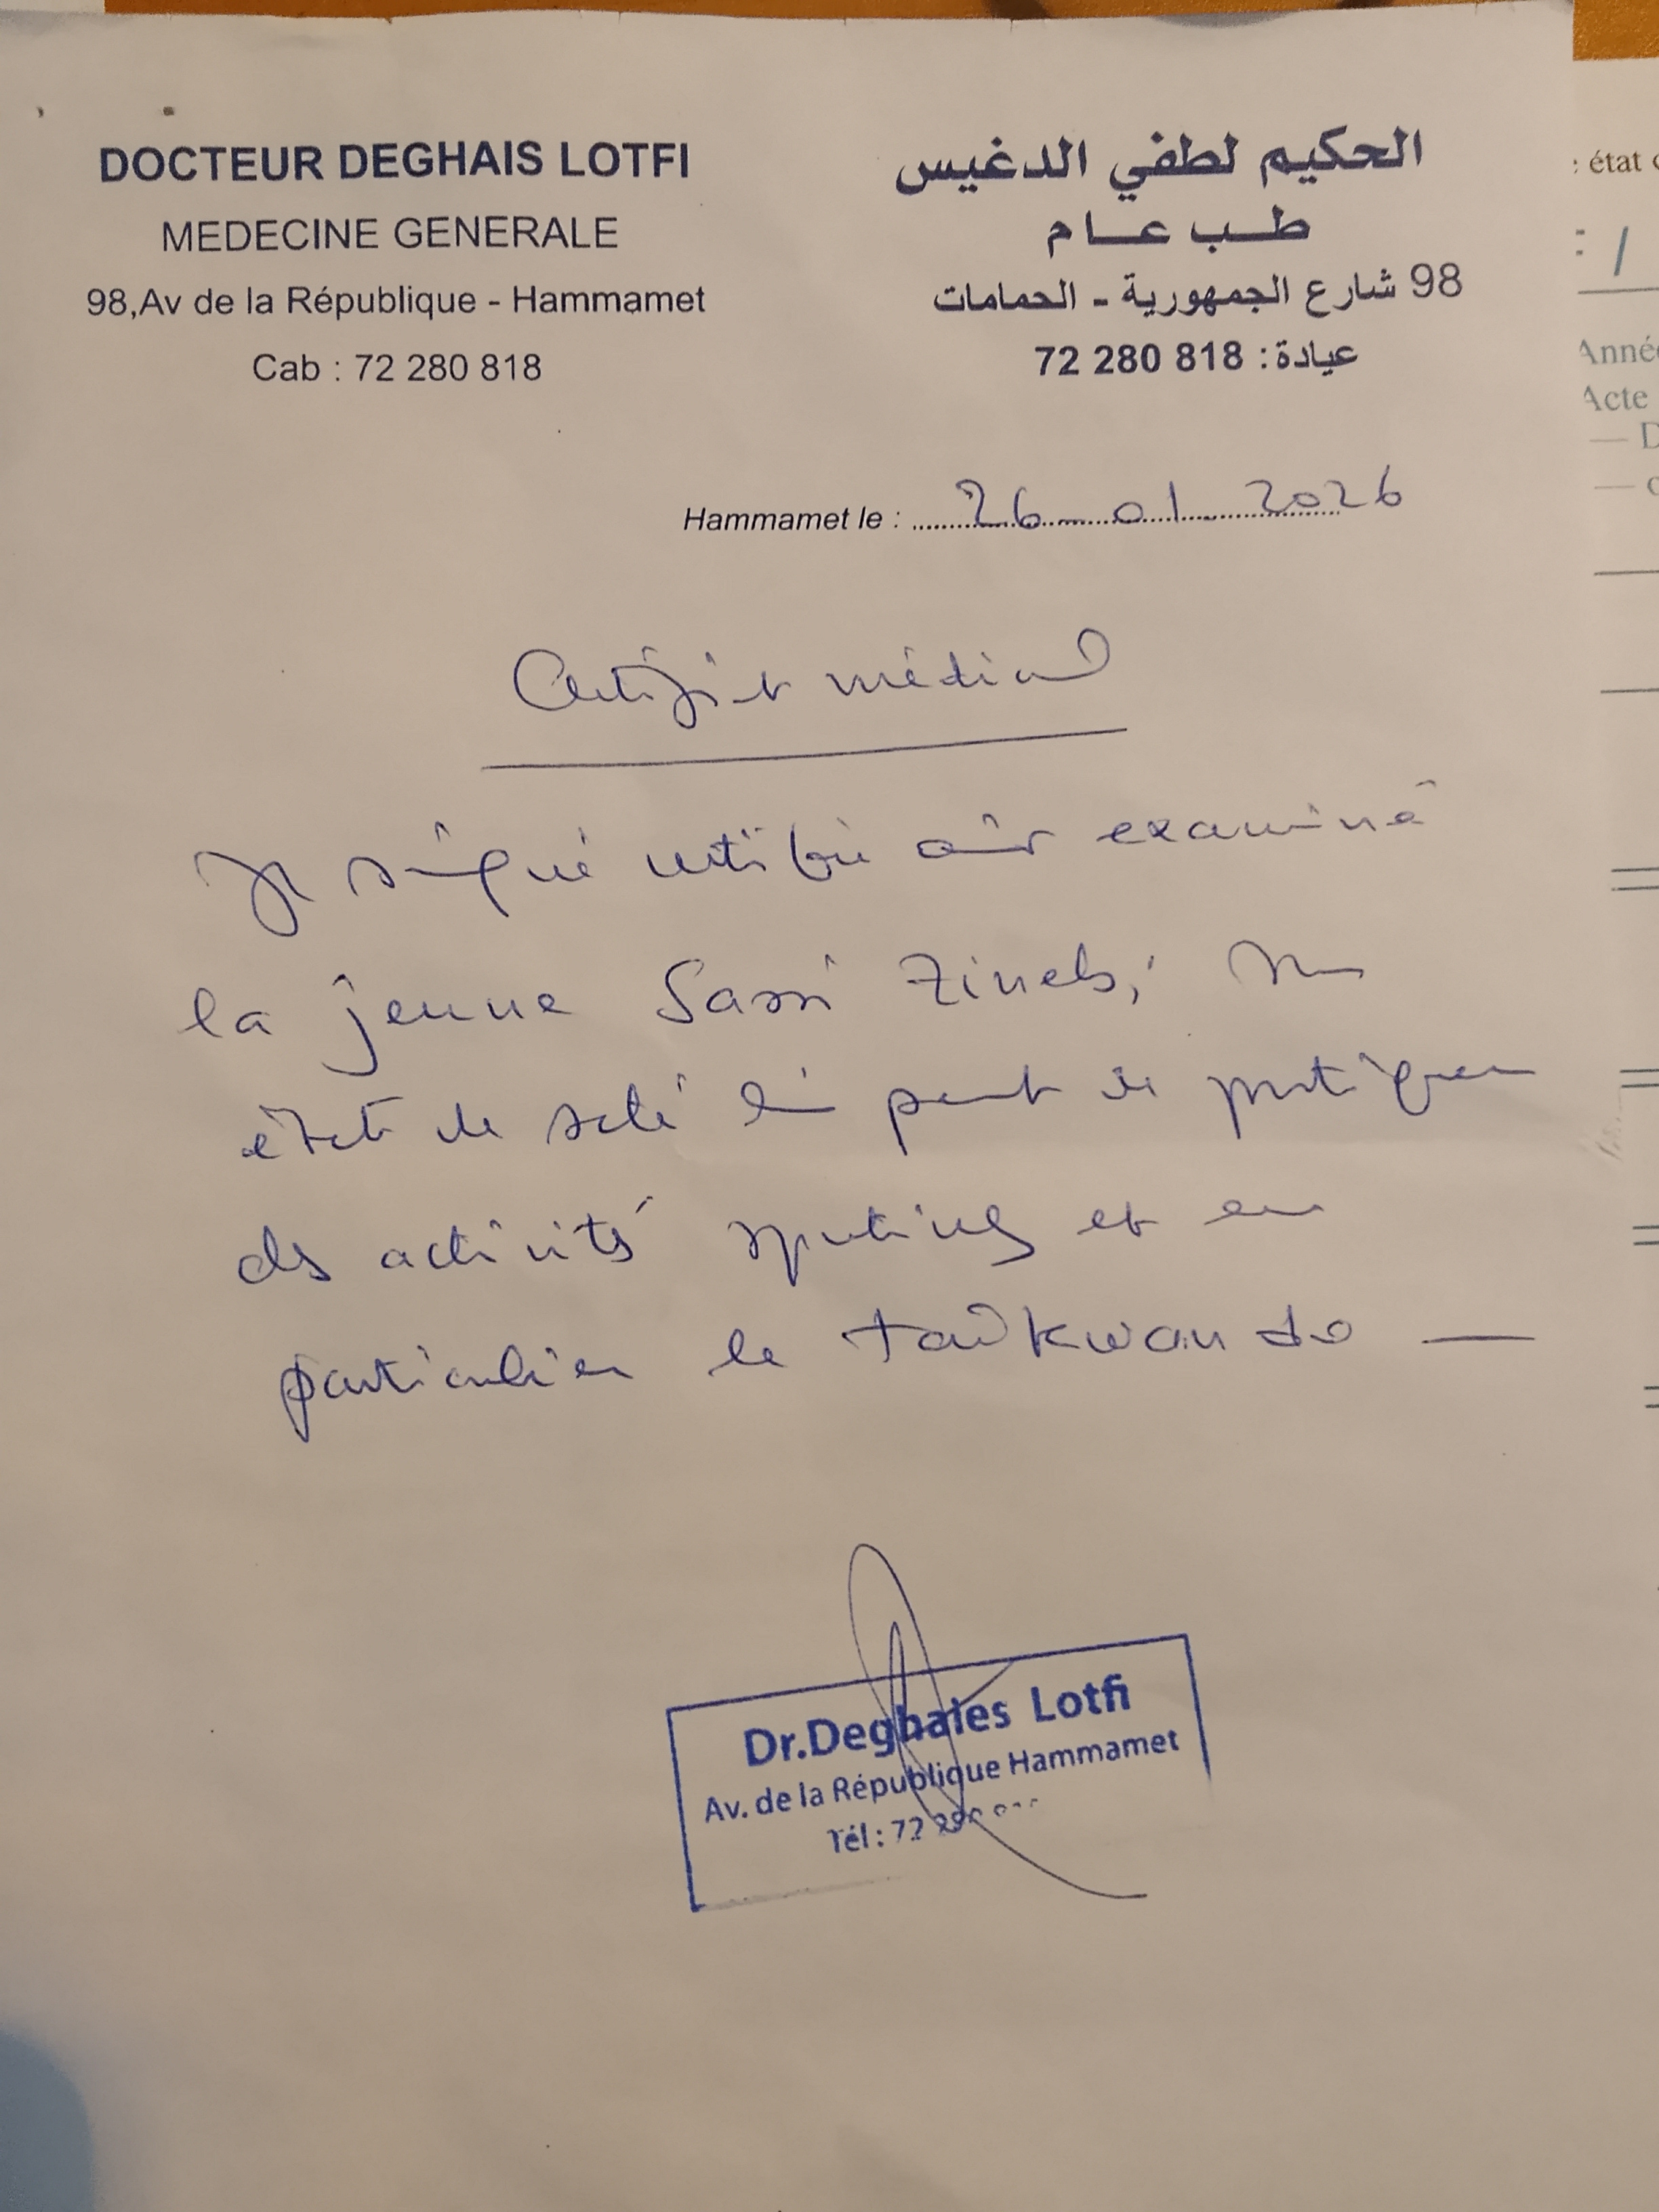 DOCTEUR DEGHAIS LOTFI
MEDECINE GENERALE
98,Av de la République - Hammamet
Cab : 72 280 818
الحكيم لطفي الدغيس
طب عام
98 شارع الجمهورية - الحمامات
عيادة : 72 280 818
Hammamet le : 26-01-2026
Certificat médical
Je soussigné certifie avoir examiné
la jeune Sassi Zineb, son
état de santé lui permet de pratiquer
des activités sportives et en
particulier le taïkwando —
Dr.Deghaies Lotfi
Av. de la République Hammamet
Tél : 72 280
: état
:
Année
Acte